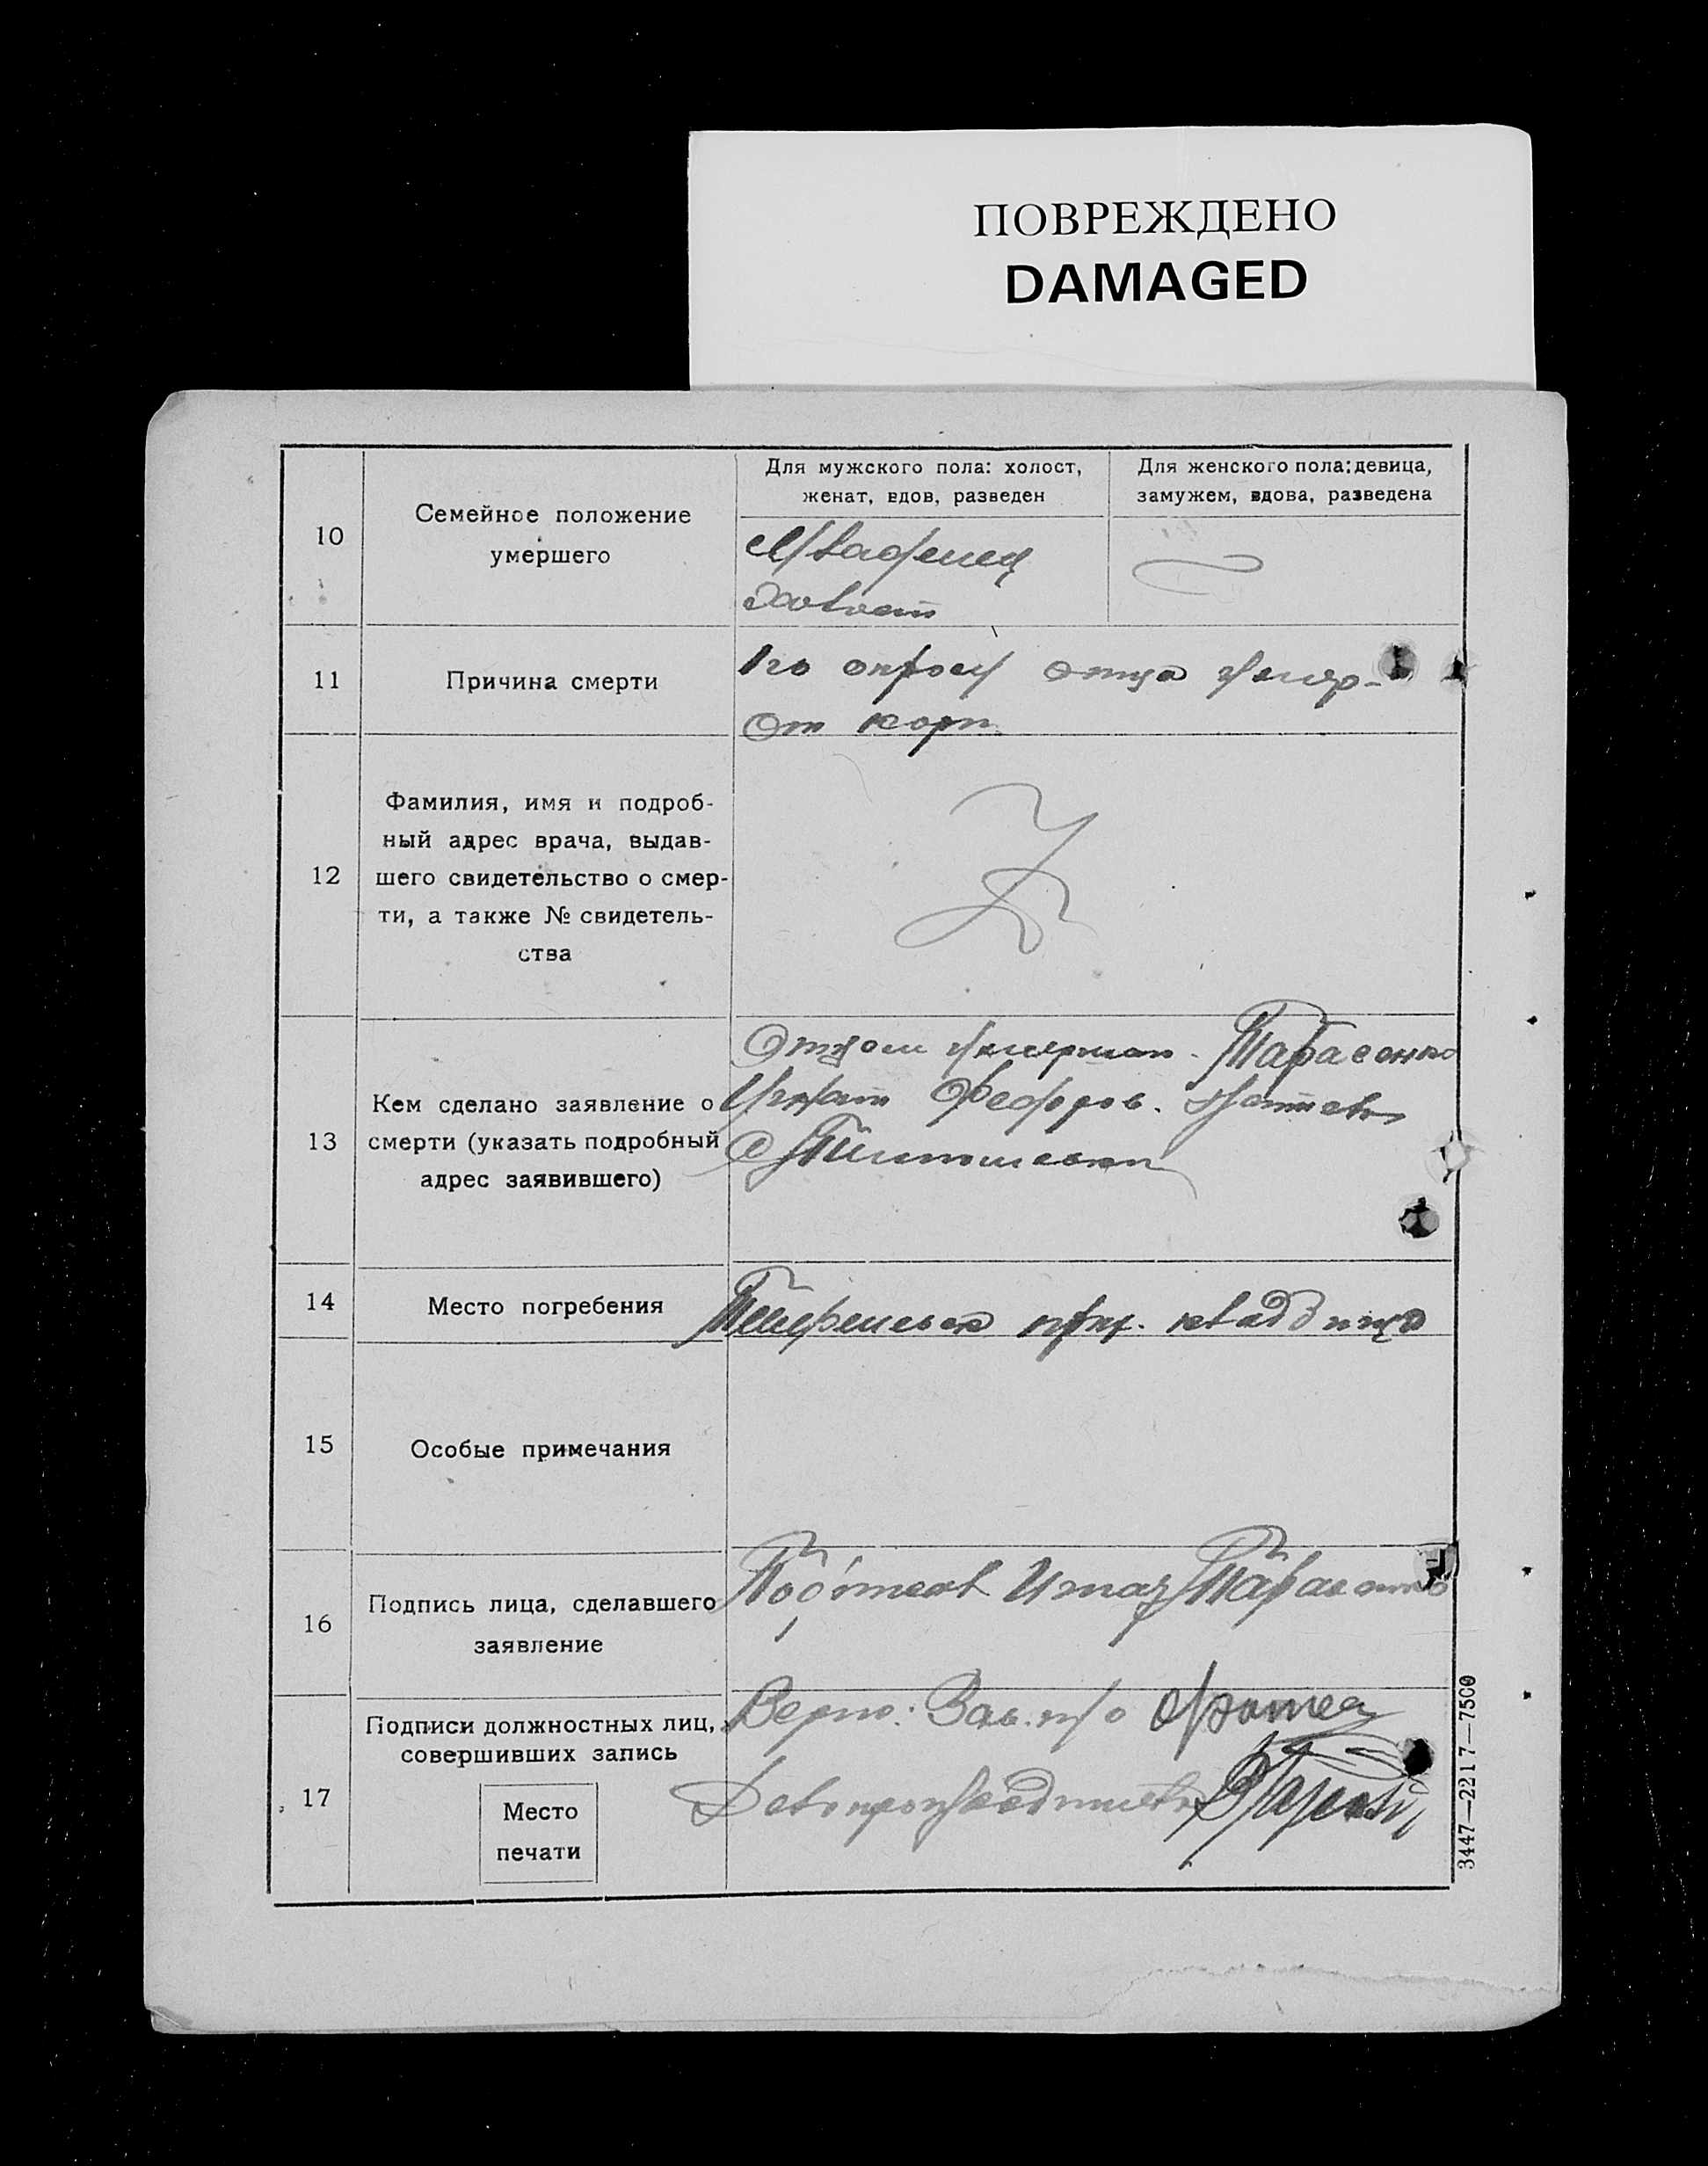 ПОВРЕЖДЕНО
DAMAGED
10
Семейное положение
умершего
Для мужского пола: холост,
женат, вдов, разведен
Для женского пола: девица,
замужем, вдова, разведена
Младенец
холост
11
Причина смерти
По опросу отца умер-
От кори
12
Фамилия, имя и подроб-
ный адрес врача, выдав-
шего свидетельство о смер-
ти, а также № свидетель-
ства
13
Кем сделано заявление о
смерти (указать подробный
адрес заявившего)
Отцом Тарасенко
Игнат Федоров.
с
14
Место погребения
кладбище
15
Особые примечания
16
Подпись лица, сделавшего
заявление
Тарасенко
17
Подписи должностных лиц,
совершивших запись
Место
печати
Верно: Зав.
Делопроизводитель
3447—2217—7500